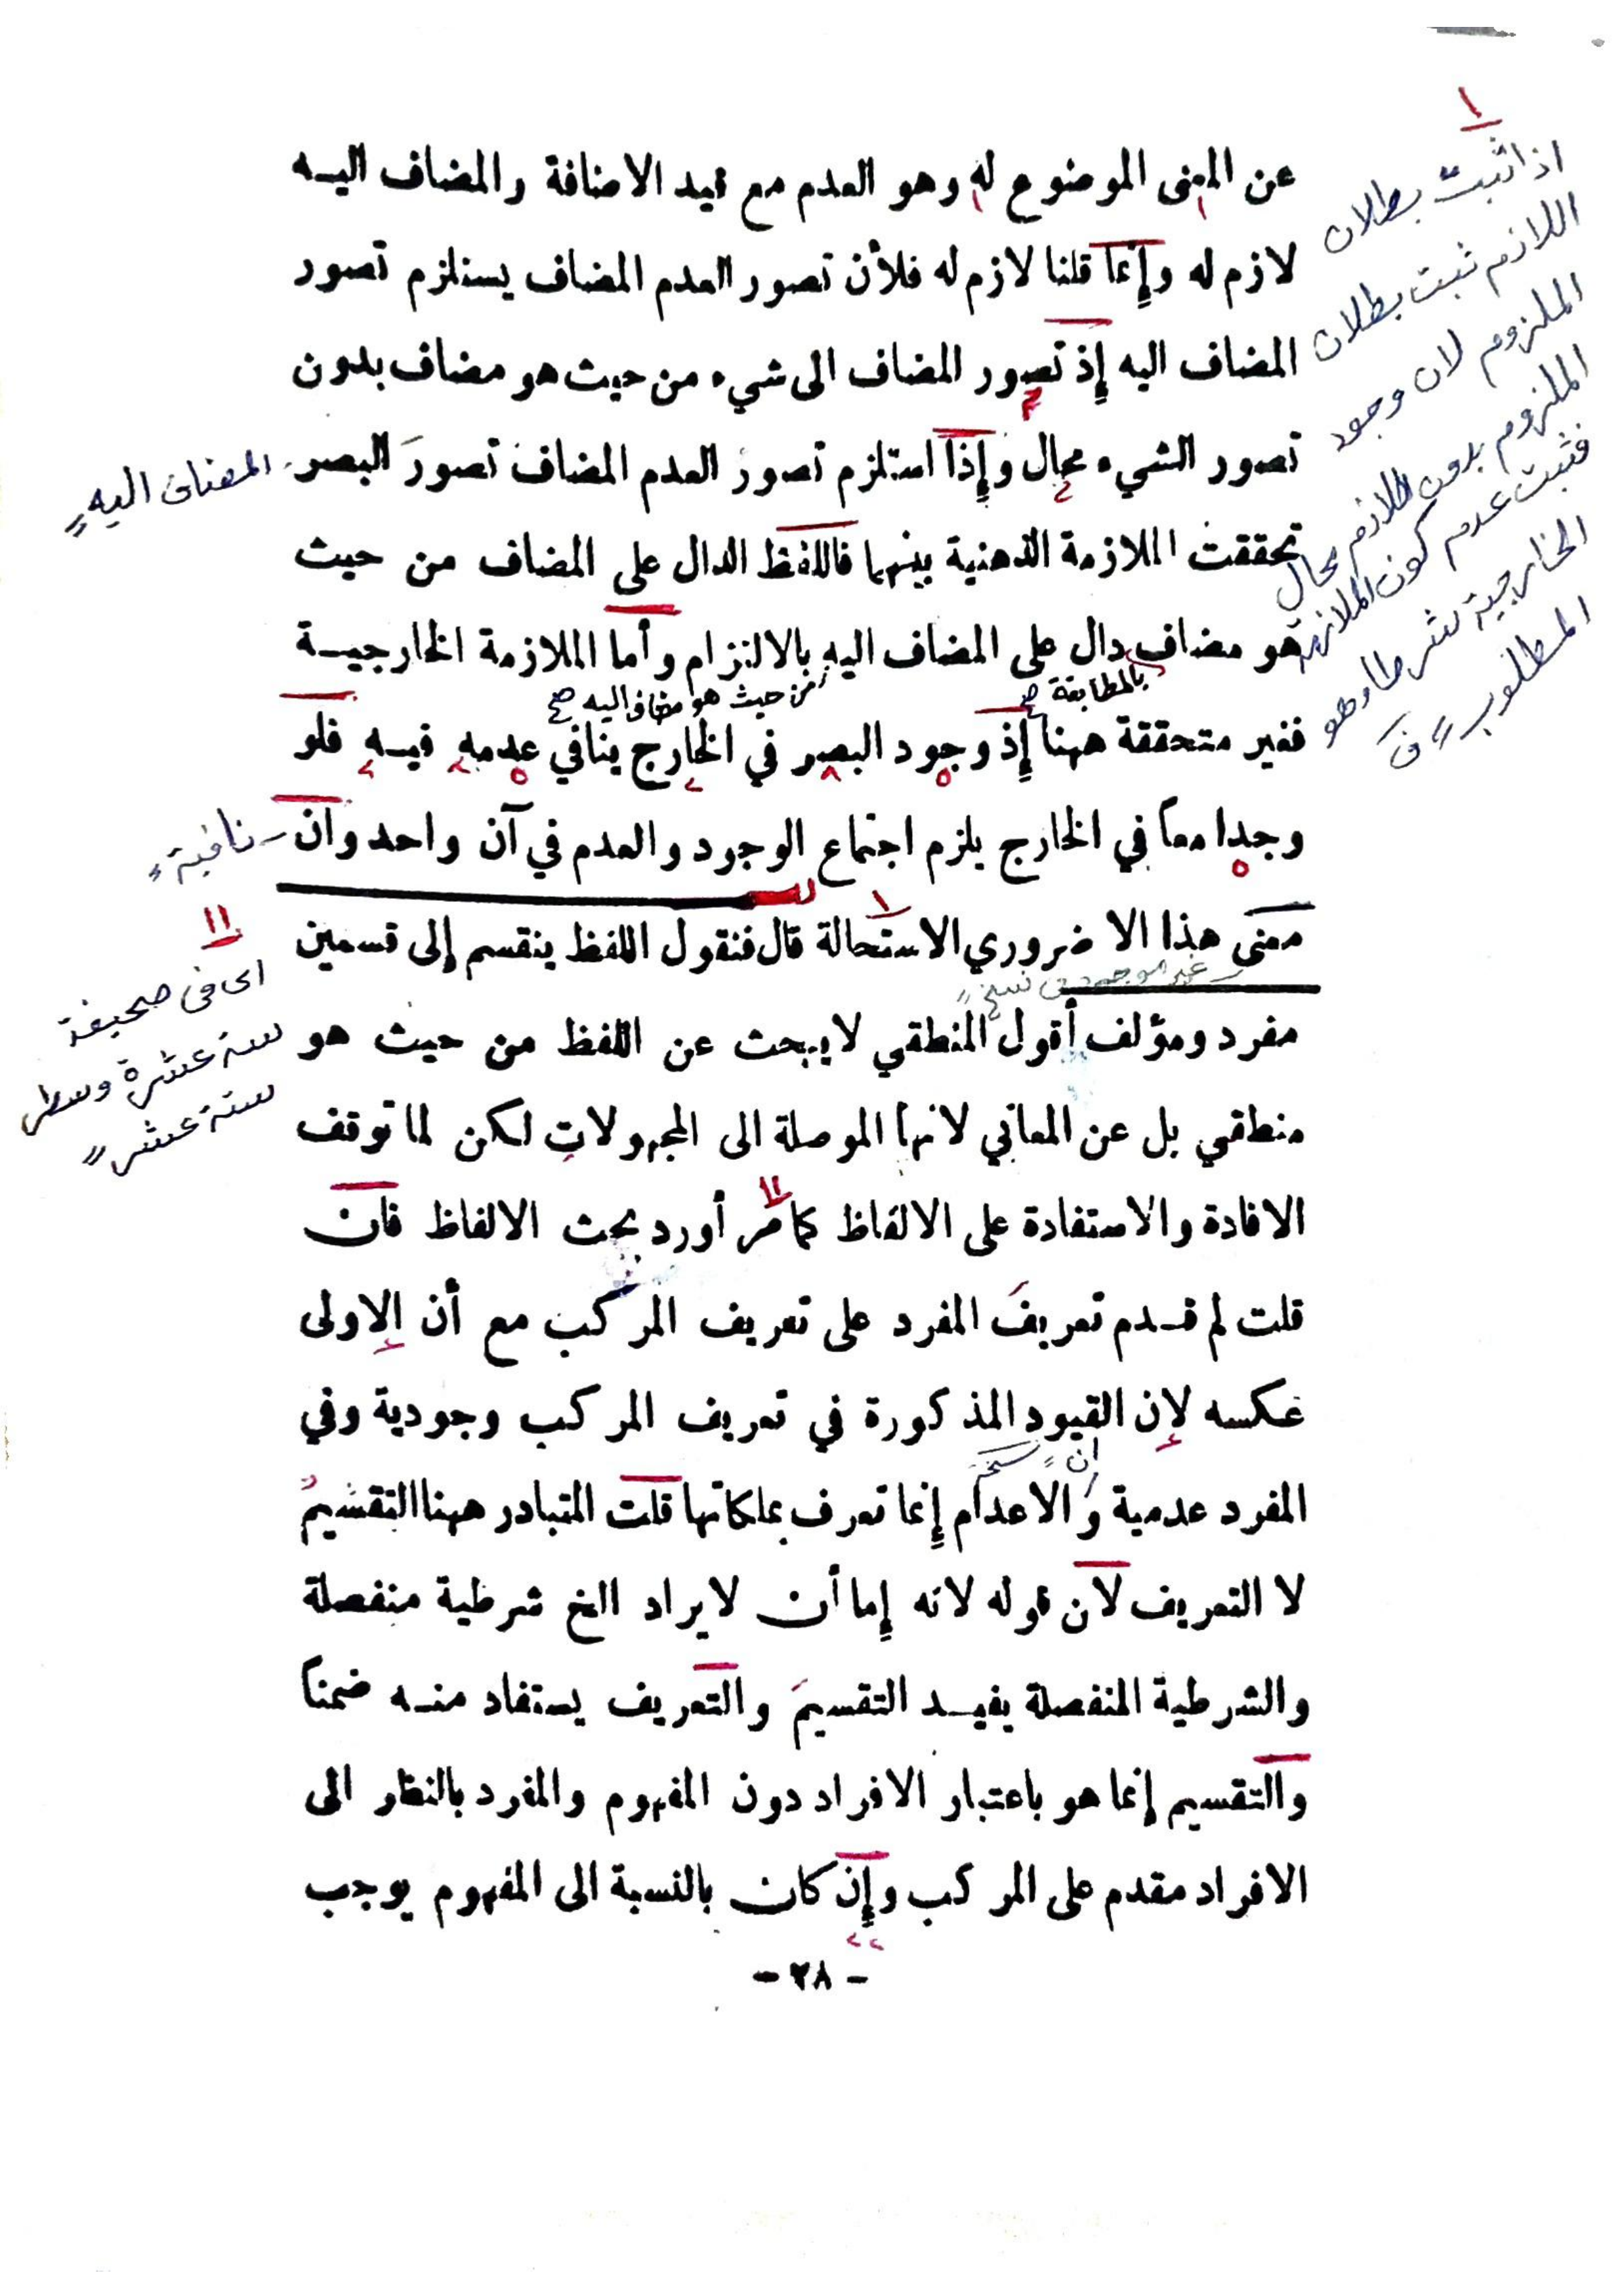 عن المعنى الموضوع له وهو العدم مع قيد الاضافة والمضاف اليه
لازم له وإنما قلنا لازم له فلأن تصور العدم المضاف يستلزم تصور
المضاف اليه إذ تصور المضاف الى شيء من حيث هو مضاف بدون
تصور الشيء محال وإذا استلزم تصور العدم المضاف تصورَ البصر
تحققت الملازمة الذهنية بينهما فاللفظ الدال على المضاف من حيث
هو مضاف دال على المضاف اليه بالالتزام وأما الملازمة الخارجية
بالمطابقة صح
من حيث هو مضاف اليه صح
فغير متحققة ههنا إذ وجود البصر في الخارج ينافي عدمه فيه فلو
وجدا معاً في الخارج يلزم اجتماع الوجود والعدم في آن واحد وان
معنى هذا الا ضروري الاستحالة قال فنقول اللفظ ينقسم إلى قسمين
غير موجود في نسخ
مفرد ومؤلف أقول المنطقي لا يبحث عن اللفظ من حيث هو
منطقي بل عن المعاني لانها الموصلة الى المجهولات لكن لما توقف
الافادة والاستفادة على الالفاظ كما مر أورد بحث الالفاظ فان
قلت لم قدم تعريفَ المفرد على تعريف المركب مع أن الاولى
عكسه لان القيود المذكورة في تعريف المركب وجودية وفي
ان نسخه
المفرد عدمية و الاعدام إنما تعرف بملكاتها قلت المتبادر ههنا التقسيمُ
لا التعريف لان قوله لانه إما أن لا يراد الخ شرطية منفصلة
والشرطية المنفصلة يفيد التقسيمَ والتعريف يستفاد منه ضمناً
والتقسيم إنما هو باعتبار الافراد دون المفهوم والمفرد بالنظر الى
الافراد مقدم على المركب وإن كان بالنسبة الى المفهوم يوجب
- ٢٨ -
١
اذا ثبت بطلان
اللازم ثبت بطلان
الملزوم لان وجود
الملزوم بدون اللازم محال
فثبت عدم كون الملازمة
الخارجية شرطا وهو
المطلوب
المضاف اليه
نافية
١١
اى فى صحيفة
ستة عشرة وسطر
ستة عشر